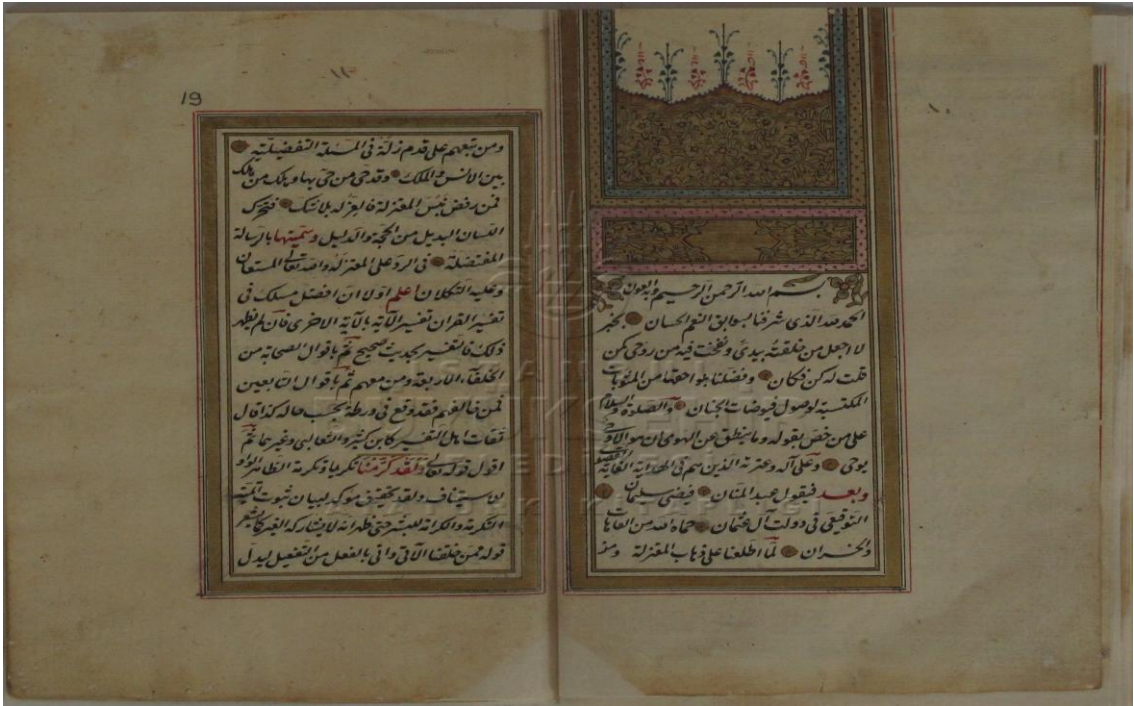 بسم الله الرحمن الرحيم وبه العون
الحمد لله الذي شرفنا بسوابق النعم الحسان بخبر
لا اجعل من خلقته بيدي ونفخت فيه من روحي كمن
قلت له كن فكان وفضلنا بلواحقها من المثوبات
المكتسبة لوصول فيوضات الجنان والصلاة والسلام
على من خص بقوله وما ينطق عن الهوى ان هو الا وحي
يوحى وعلى آله وعترته الذين هم في الهداية الغاية
وبعد فيقول عبد المنان فيضي سليمان
التوقيعي في دولت آل عثمان حماه الله من العاهات
والخسران لما اطلعنا على ذهاب المعتزلة ومن
19
ومن تبعهم على قدم زلة في المسئلة التفضيلية
بين الانس والملك وقد حي من حي بها ويهلك من هلك
فمن رفض بئس المعتزلة فالعز له بلا شك فتحرك
اللسان البديل من الحجة والدليل وسميتها بالرسالة
المفتضلة في الرد على المعتزلة والله تعالى المستعان
وعليه التكلان اعلم اولا ان افضل مسلك في
تفسير القران تفسير الآية بالآية الاخرى فان لم يظهر
ذلك فالتفسير بحديث صحيح ثم باقوال الصحابة من
الخلفاء الاربعة ومن معهم ثم باقوال التابعين
فمن خالفهم فقد وقع في ورطة بحسب حاله كذا قال
ثقات اهل التفسير كابن كثير والثعالبي وغيرهما ثم
اقول قوله تعالى ولقد كرمنا تكريما وتكرمة الظاهر الواو
للاستيناف ولقد تحقيق موكد لبيان ثبوت
التكرمة والكرامة للبشر حتى ظهر انه لا يشاركه الغير كما يشعر
قوله ممن خلقنا الآتي واتى بالفعل من التفعيل ليدل